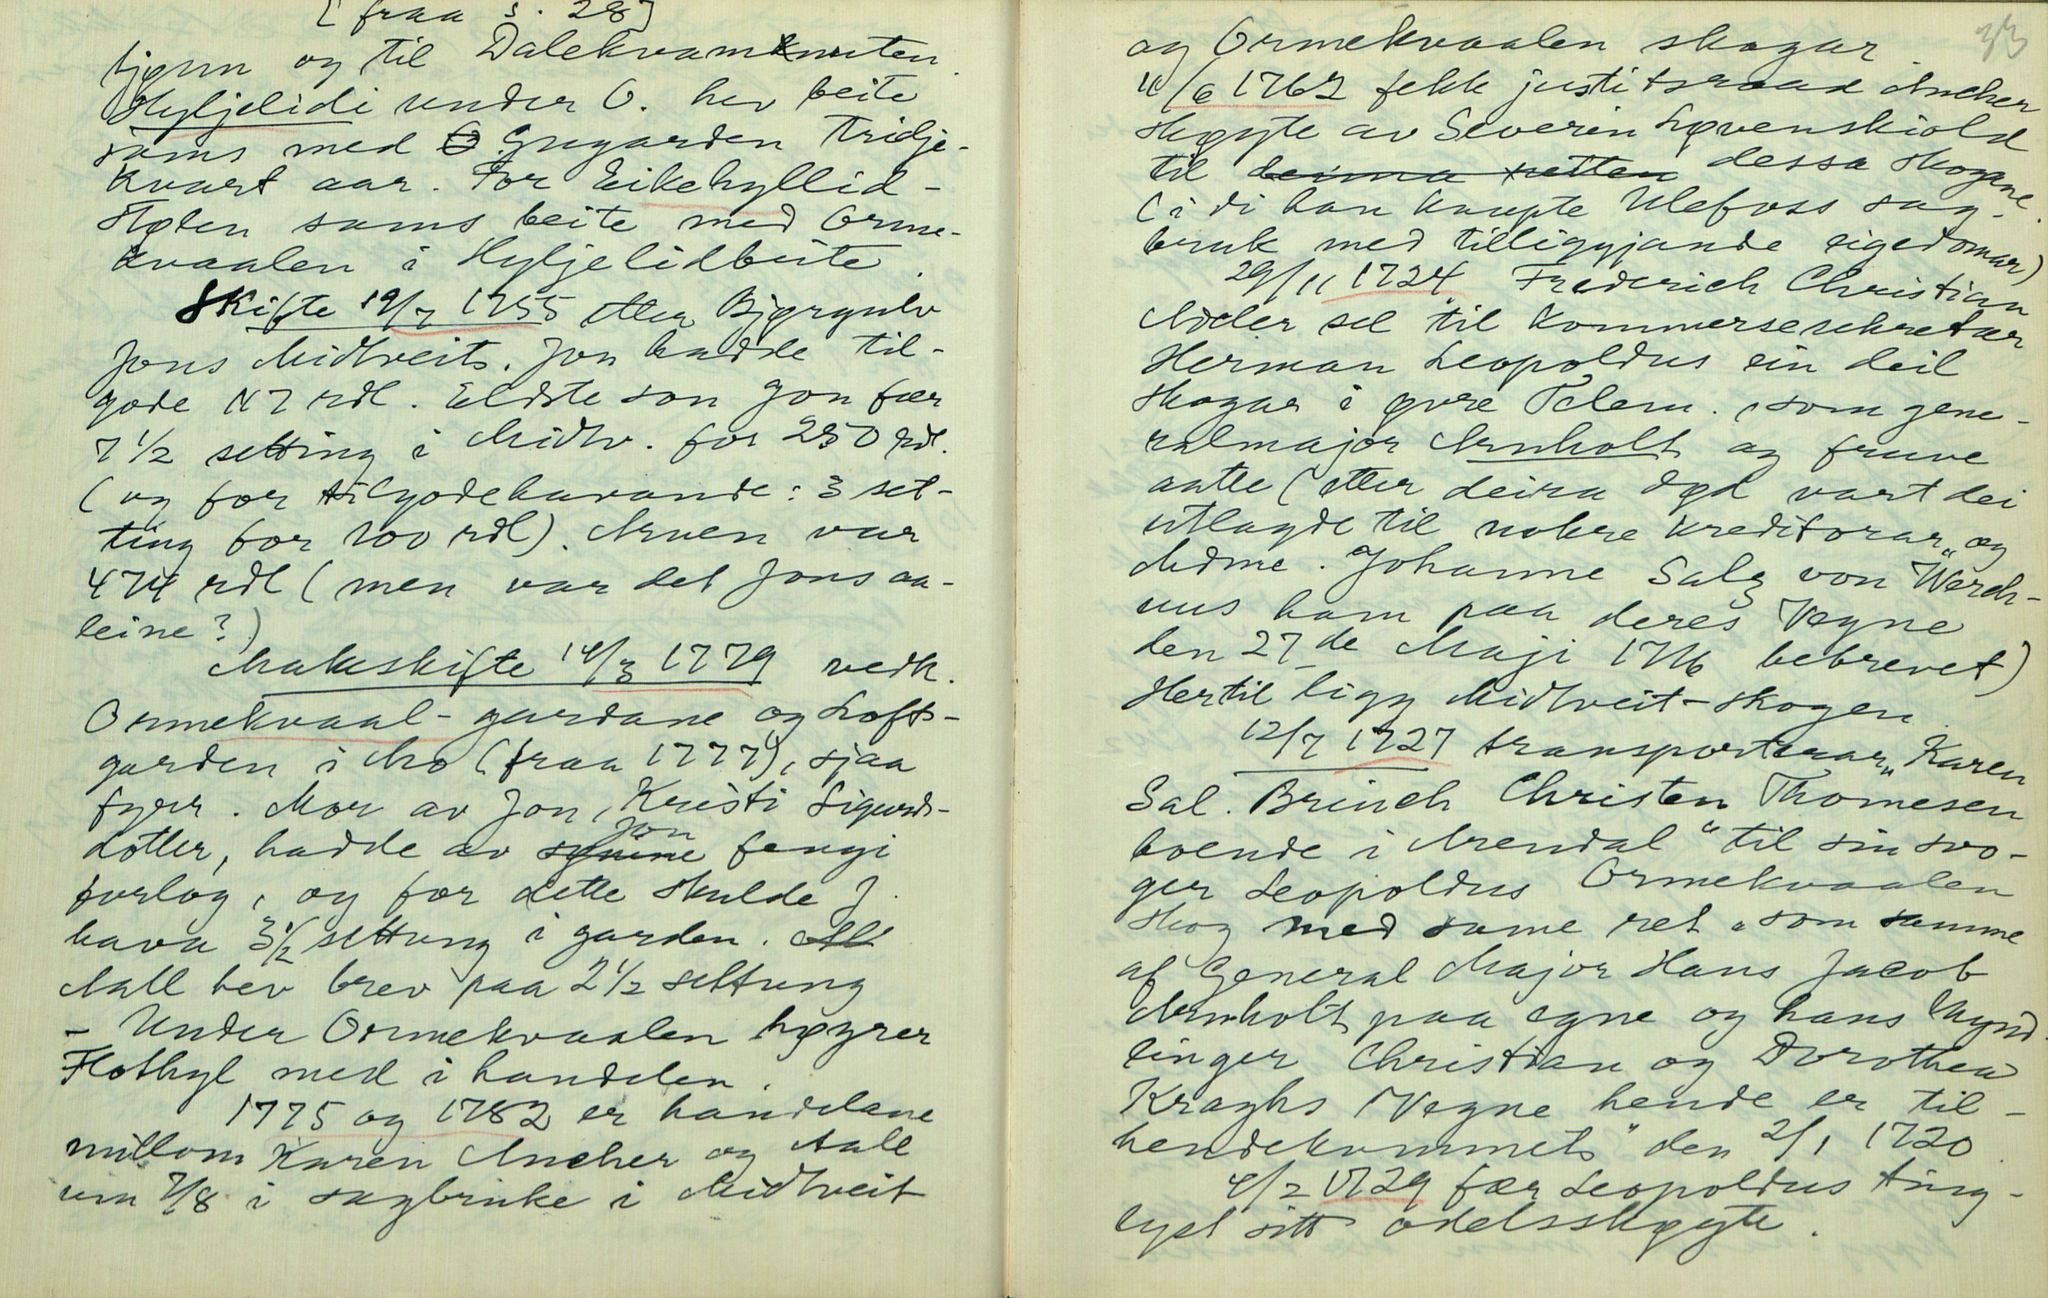 [fraa s. 28]
tjønn og til Dalekvamsnuten.
Hyljelidi under O. hev beite
sams med Øygarden tridje-
kvart aar. For Eikehyllid-
støten sams beite med Orme-
kvaalen i Hyljelidbeite.
Skifte 19/7 1755 etter Bjørgulv
Jons Midtveit. Jon hadde til-
gode 117 rdl. Eldste son Jon fær
7 1/2 setting i Midtv. for 250 rdl.
(og for tilgodehavande: 3 set-
ting for 100 rdl). Arven var
474 rdl (men var det Jons aa-
leine?)
Makeskifte 14/3 1779 vedk.
Ormekvaal-gardane og Lofts-
garden i Mo (fraa 1777), sjaa
fyrr. Mor av Jon, Kristi Sigurds-
dotter, hadde av Jon fengi
forlog, og for dette skulde J.
hava 3 1/2 settung i garden.
Aall hev brev paa 2 1/2 settung
- Under Ormekvaalen høyrer
Flothyl med i handelen.
1775 og 1782 er handelane
millom Karen Ancher og Aall
um 7/8 i sagbruke i Midtveit
33
og Ormekvaalen skogar
16/6 1762 fekk justitsraad Ancher
skøyte av Severin Løvenskiold
til denna retten dessa skogane.
(i di han kaupte Ulefoss sag-
bruk med tilliggjande eigedomar)
29/11 1724 Frederich Christian
Adeler sel til Kommersesekretær
Herman Leopoldus ein deil
skogar i øvre Telem., som gene-
ralmajor Arnholt og fruve
aatte (etter deira død vart dei
utlagde til nokre kreditorar „og
Mdme. Johanne Salg von Werch-
uus ham paa deres Vegne
den 27de Maji 1716 bebrevet)
Hertil ligg Midtveit-skogen.
12/7 1727 transporterar „Karen
Sal. Brinch Christen Thomesen
boende i Arendal" til sin svo-
ger Leopoldus Ormekvaalen
skog med same ret „som samme
af General Major Hans Jacob
Arnholt paa egne og hans Mynd-
linger Christian og Dorothea
Kraghs Vegne hende er til-
hendekommet" den 2/1 1720.
4/2 1729 fær Leopoldus ting-
lyst sitt odelsskøyte.